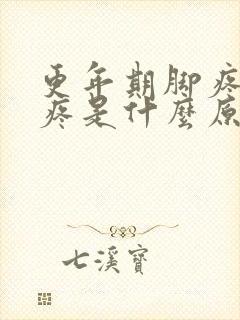 更年期脚疼
疼是什麼原
七溪寶